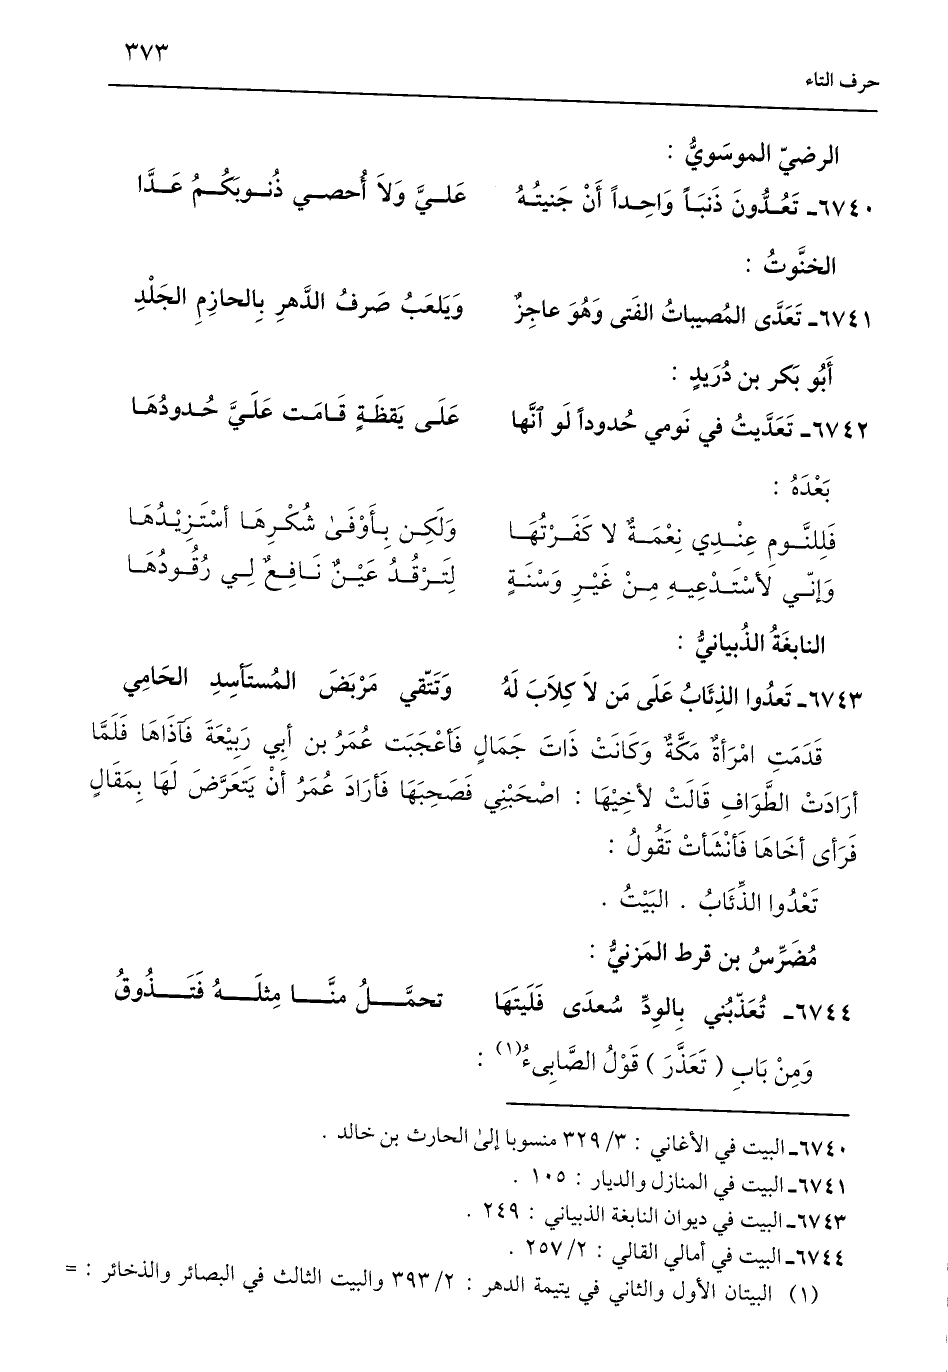 ٣٧٣
حرف التاء
الرضيّ الموسَويُّ :
٦٧٤٠ـ تَعُدُّونَ ذَنبَاً وَاحِداً أَنْ جَنيتُهُ عَليَّ وَلاَ أُحصي ذُنوبَكُمُ عَدَّا
الخنَّوتُ :
٦٧٤١ـ تَعَدَّى المُصيباتُ الفَتى وَهُوَ عاجِزٌ وَيَلعَبُ صَرفُ الدَّهرِ بِالحازِمِ الجَلْدِ
أَبُو بَكر بن دُرَيدٍ :
٦٧٤٢ـ تَعَدَّيتُ في نَومي حُدوداً لَو ٱنَّها عَلَى يَقظَةٍ قَامَت عَلَيَّ حُدودُهَا
بَعْدَهُ :
فَلِلنَّومِ عِنْدِي نِعْمَةٌ لا كَفَرْتُهَا وَلَكِن بِأَوْفَىٰ شُكْرِهَا أسْتَزِيْدُهَا
وَإنّي لأسْتَدْعِيهِ مِنْ غَيْرِ وَسْنَةٍ لِتَرْقُدُ عَيْنٌ نَافِعٌ لِي رُقُودُهَا
النابغَةُ الذُبيانيُّ :
٦٧٤٣ـ تَعدُوا الذِئَابُ عَلَى مَن لاَ كِلاَبَ لَهُ وَتَتَّقي مَرْبَضَ المُستَأسِدِ الحَامِي
قَدَمَتِ امْرَأةٌ مَكَّةٌ وَكَانَتْ ذَاتَ جَمَالٍ فَأعْجَبَت عُمَرُ بن أبي رَبِيْعَةَ فَآذَاهَا فَلَمَّا
أرَادَتْ الطَّوَافِ قَالَتْ لأخِيْهَا : اصْحَبْنِي فَصَحِبَهَا فَأرَادَ عُمَرُ أنْ يَتَعَرَّضَ لَهَا بِمَقَالٍ
فَرَأى أخَاهَا فَأنْشَأتْ تَقُولُ :
تَعْدُوا الذِّئَابُ . البَيْتُ .
مُضَرِّسُ بن قرط المَزنيُّ :
٦٧٤٤ـ تُعَذّبُني بِالودِّ سُعدَى فَلَيتَهَا تحمَّلُ منَّا مِثلَهُ فَتَذُوقُ
وَمِنْ بَابِ ( تَعَذَّرَ ) قَوْلُ الصَّابِىءُ(١) :
٦٧٤٠ـ البيت في الأغاني : ٣/ ٣٢٩ منسوبا إلىٰ الحارث بن خالد .
٦٧٤١ـ البيت في المنازل والديار : ١٠٥ .
٦٧٤٣ـ البيت في ديوان النابغة الذبياني : ٢٤٩ .
٦٧٤٤ـ البيت في أمالي القالي : ٢/ ٢٥٧ .
(١) البيتان الأول والثاني في يتيمة الدهر : ٢/ ٣٩٣ والبيت الثالث في البصائر والذخائر : =